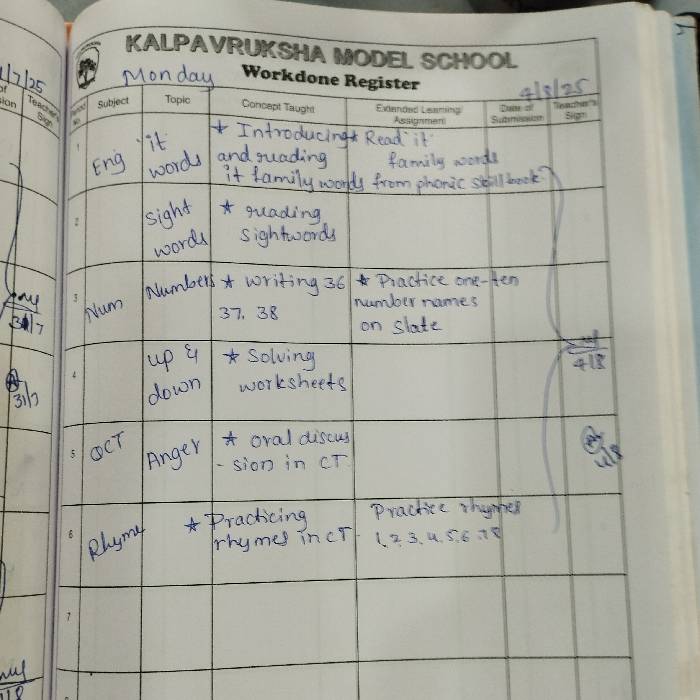 KALPAVRUKSHA MODEL SCHOOL
Monday Workdone Register 4/8/25
Period No. Subject Topic Concept Taught Extended Learning/ Assignment Date of Submission Teacher's Sign
1 Eng 'it' words ★ Introducing and reading it family words ★ Read 'it' family words from phonic skill book.
2 sight words ★ reading sightwords
3 Num Numbers ★ writing 36 37, 38 ★ Practice one-ten number names on slate
4 up & down ★ Solving worksheets
4/8
5 OCT Anger ★ oral discus - sion in CT
4/8
6 Rhyme ★ Practicing rhymes in CT Practice rhymes 1,2,3,4,5,6,7,8
7
1/7/25
Teacher's Sign
31/7
31/7